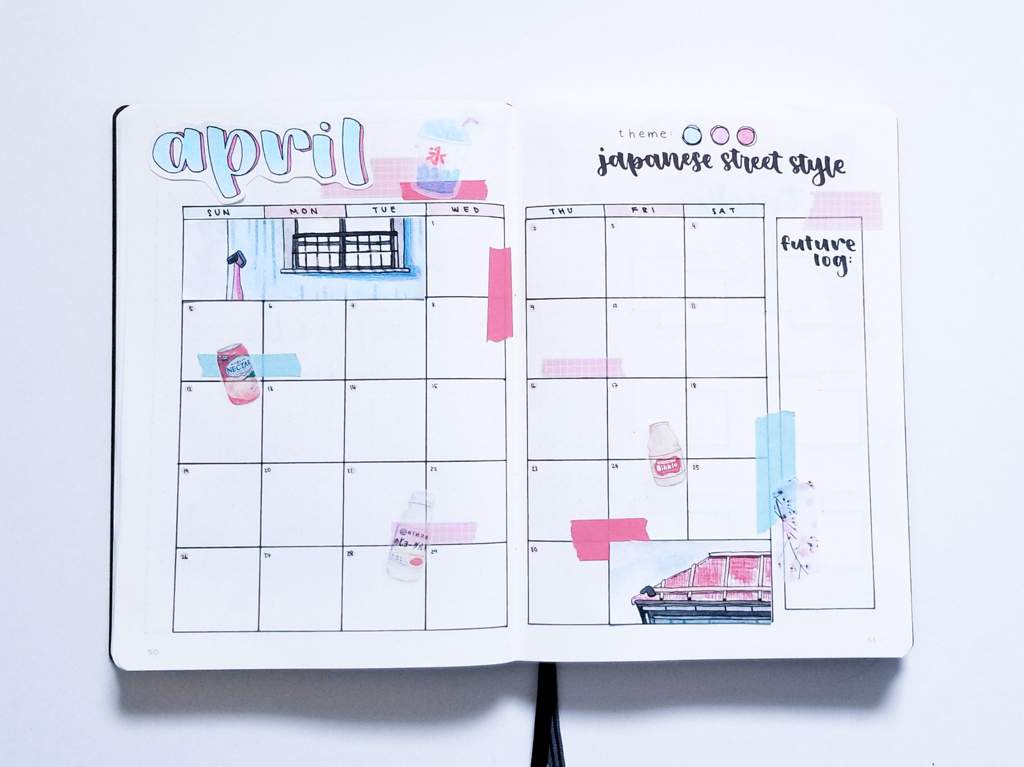 april
氷
theme:
japanese street style
SUN MON TUE WED THU FRI SAT
future
log:
1 2 3 4
5 6 7 8 9 10 11
NECTAR
12 13 14 15 16 17 18
Bikkle
19 20 21 22 23 24 25
26 27 28 29 30
50 51